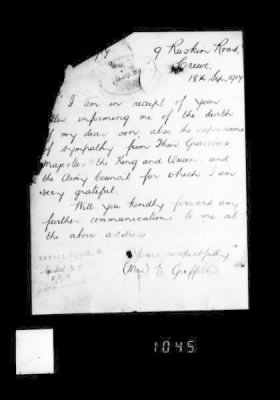 9 Ruskin Road,
Crewe.
18th Sep. 1917
I am in receipt of your
letter informing me of the death
of my dear son, also the expressions
of sympathy from Their Gracious
Majesties the King and Queen, and
the Army Council for which I am
very grateful.
Will you kindly forward any
further communications to me at
the above address
Yours respectfully
(Mrs) E. Griffiths
1045